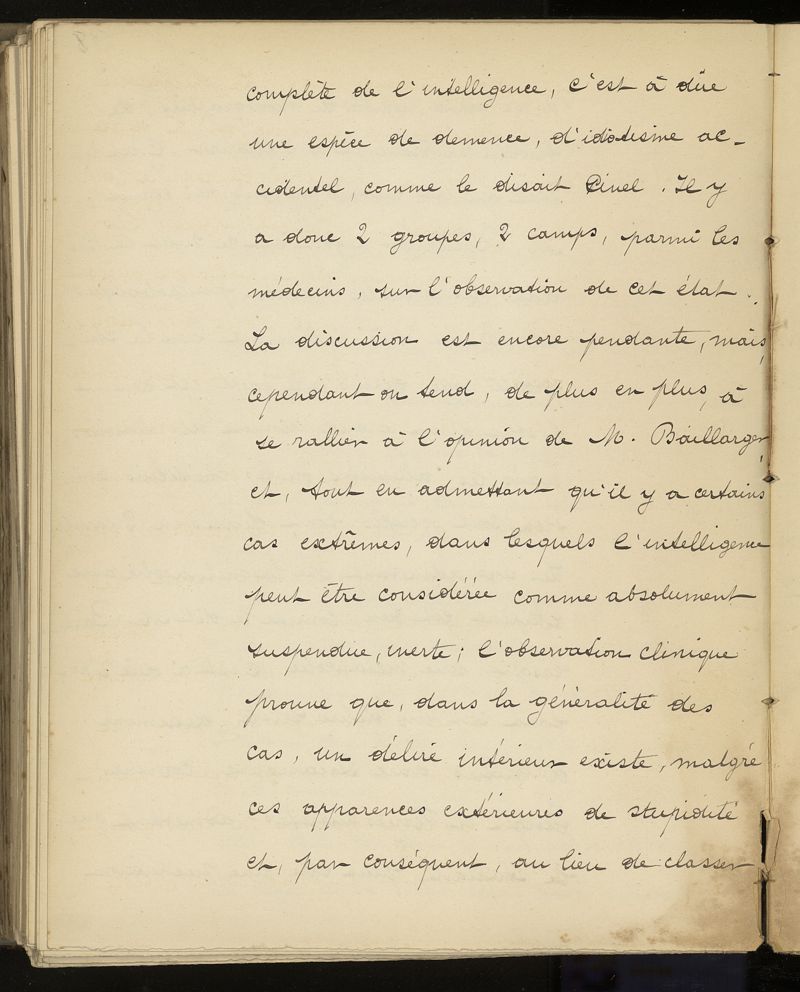 complète de l'intelligence, c'est à dire
une espèce de demence, d'idiotisme ac-
cidentel, comme le disait Pinel. Il y
a donc 2 groupes, 2 camps, parmi les
médecins, sur l'observation de cet état.
La discussion est encore pendante, mais,
cependant on tend, de plus en plus, à
se rallier à l'opinion de M. Baillarger
et, tout en admettant qu'il y a certains
cas extrêmes, dans lesquels l'intelligence
peut être considérée comme absolument
suspendue, inerte; l'observation clinique
prouve que, dans la généralité des
cas, un délire intérieur existe, malgré
ces apparences extérieures de stupidité
et, par conséquent, au lieu de classer